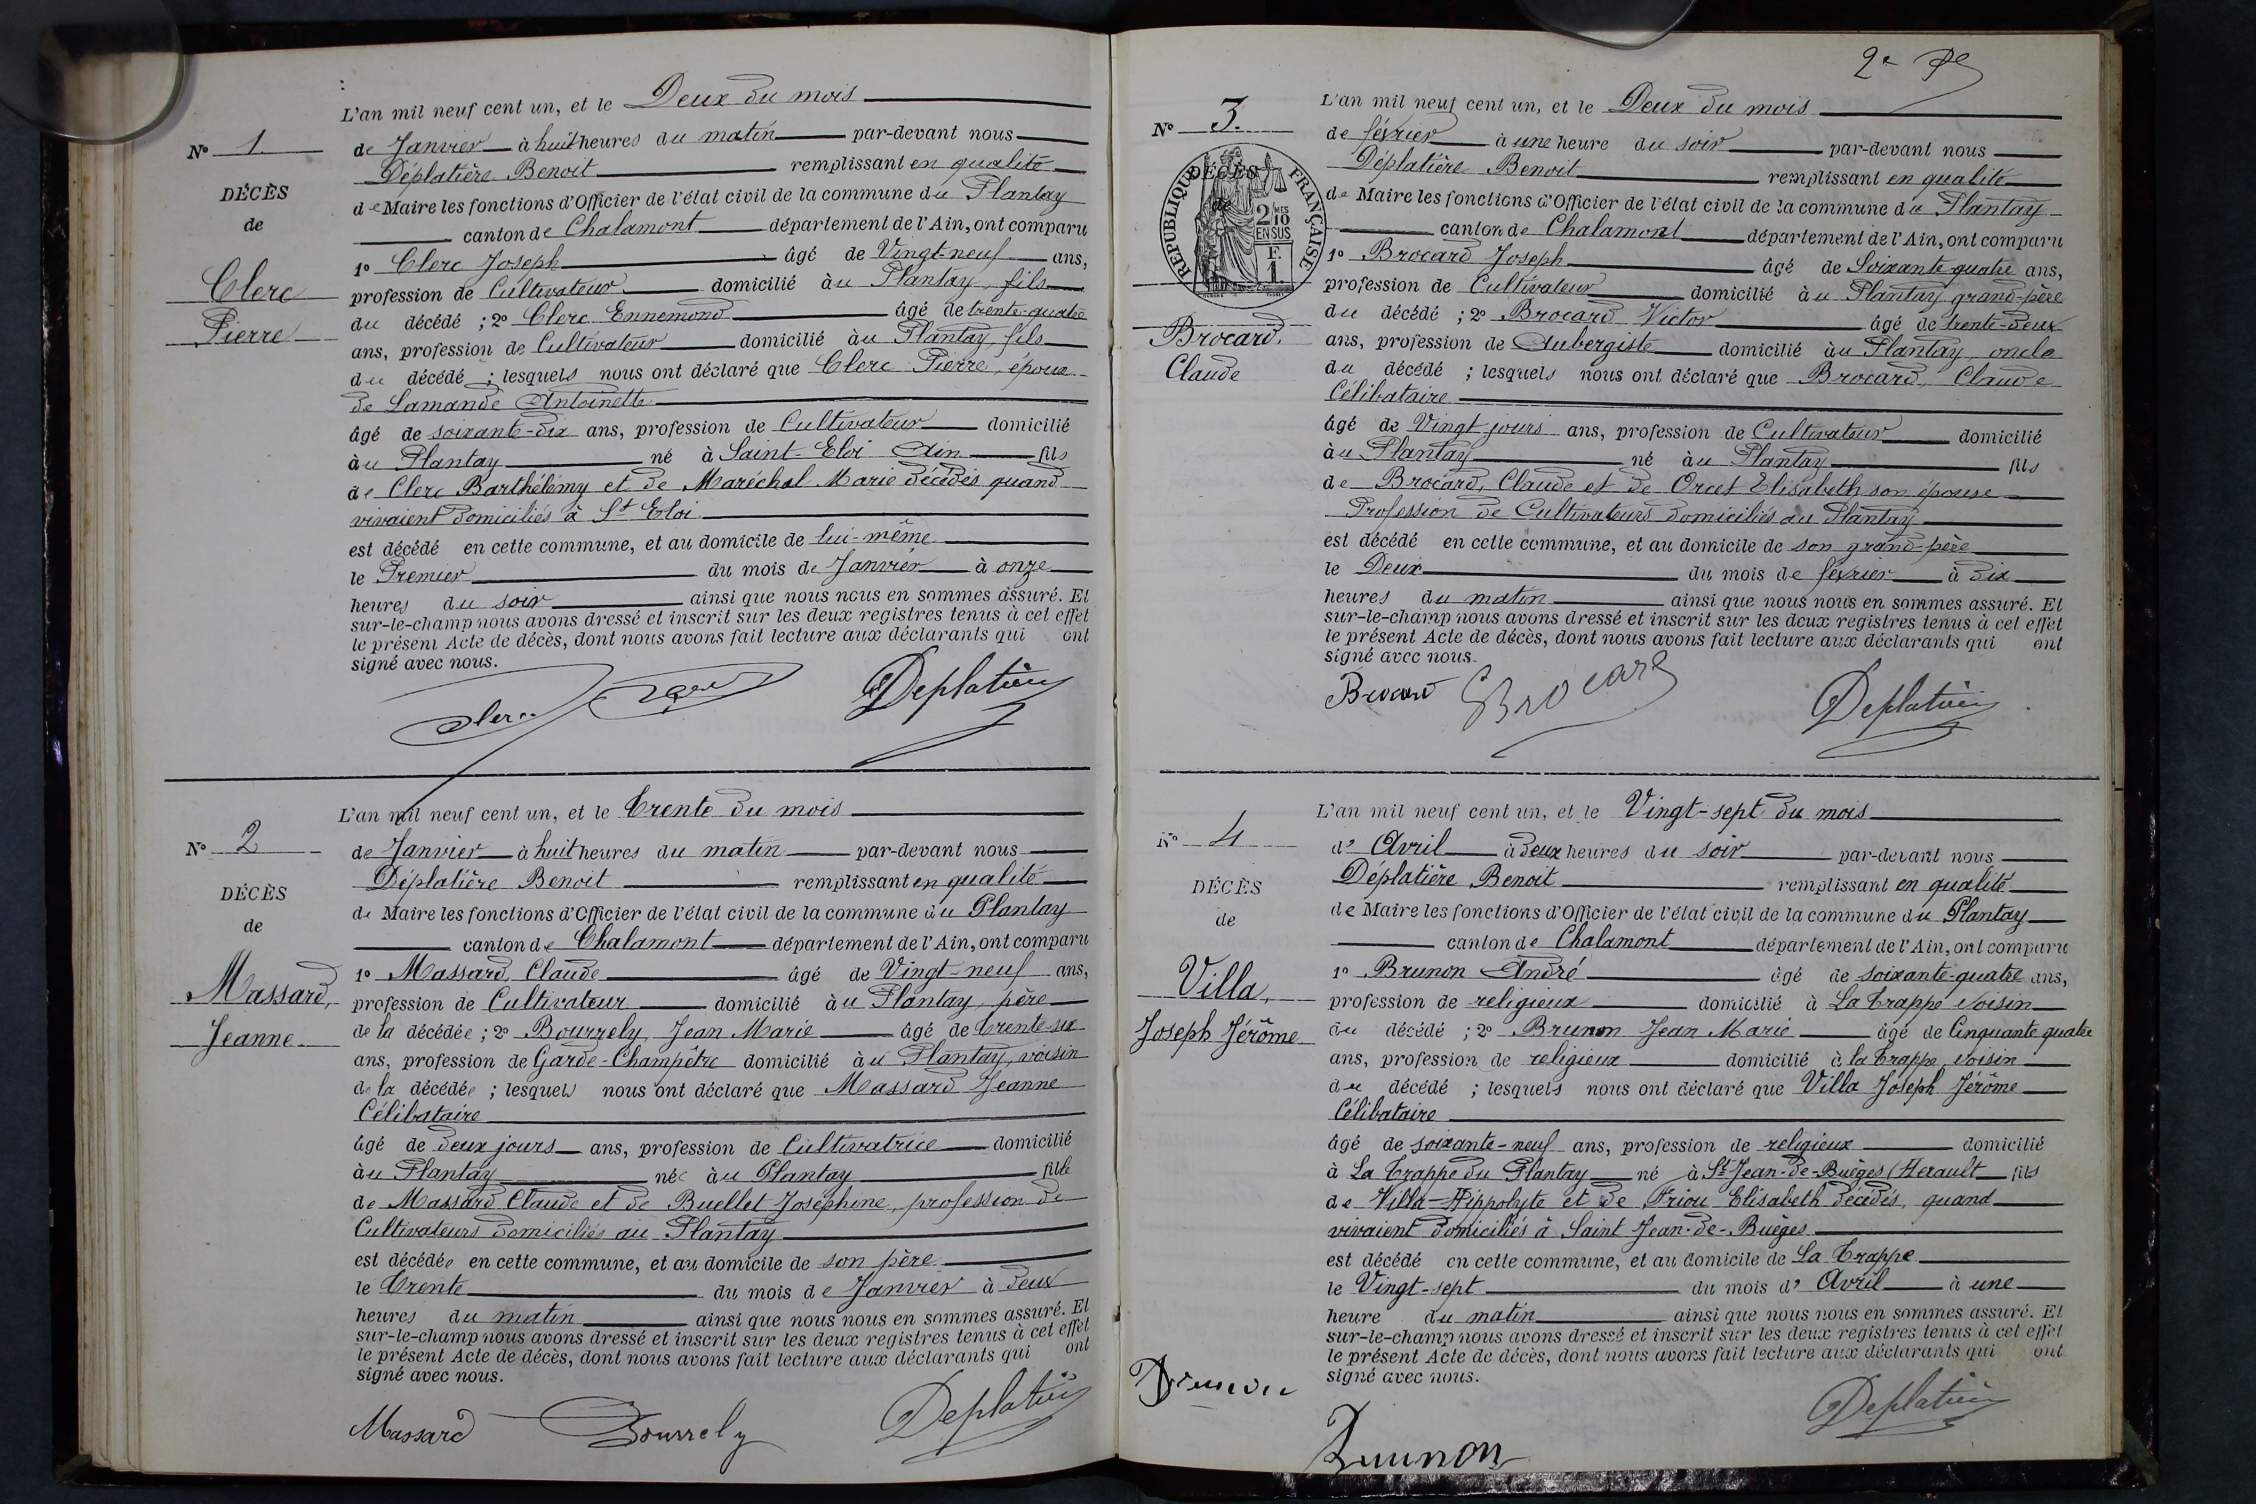 L'an mil neuf cent un, et le Deux du mois
No 1.
de Janvier à huit heures du matin par-devant nous
Déplatière Benoit remplissant en qualité
DÉCÈS
de Maire les fonctions d'Officier de l'état civil de la commune du Plantay
de
canton de Chalamont département de l'Ain, ont comparu
1o Clerc Joseph âgé de Vingt-neuf ans,
Clerc
profession de Cultivateur domicilié au Plantay, fils
Pierre
du décédé ; 2o Clerc Ennemond âgé de trente-quatre
ans, profession de Cultivateur domicilié au Plantay, fils
du décédé ; lesquels nous ont déclaré que Clerc Pierre, époux
de Lamande Antoinette
âgé de soixante-dix ans, profession de Cultivateur domicilié
au Plantay né à Saint-Eloi Ain fils
de Clerc Barthélemy et de Maréchal Marie décédés quand
vivaient domiciliés à St Eloi
est décédé en cette commune, et au domicile de lui-même
le Premier du mois de Janvier à onze
heures du soir ainsi que nous nous en sommes assuré. Et
sur-le-champ nous avons dressé et inscrit sur les deux registres tenus à cet effet
le présent Acte de décès, dont nous avons fait lecture aux déclarants qui ont
signé avec nous.
Clerc Deplatière
L'an mil neuf cent un, et le Trente du mois
No 2
de Janvier à huit heures du matin par-devant nous
Déplatière Benoit remplissant en qualité
DÉCÈS
de Maire les fonctions d'Officier de l'état civil de la commune du Plantay
de
canton de Chalamont département de l'Ain, ont comparu
1o Massard, Claude âgé de Vingt-neuf ans,
Massard,
profession de Cultivateur domicilié au Plantay, père
Jeanne
de la décédée ; 2o Bourrely, Jean Marie âgé de trente-six
ans, profession de Garde-Champêtre domicilié au Plantay, voisin
de la décédée ; lesquels nous ont déclaré que Massard Jeanne
Célibataire
âgé de deux jours ans, profession de Cultivatrice domicilié
au Plantay née au Plantay fille
de Massard Claude et de Buellet Joséphine, profession de
Cultivateurs domiciliés au Plantay
est décédée en cette commune, et au domicile de son père
le Trente du mois de Janvier à deux
heures du matin ainsi que nous nous en sommes assuré. Et
sur-le-champ nous avons dressé et inscrit sur les deux registres tenus à cet effet
le présent Acte de décès, dont nous avons fait lecture aux déclarants qui ont
signé avec nous.
Massard Bourrely Deplatière
2e
L'an mil neuf cent un, et le Deux du mois
No 3.
de février à une heure du soir par-devant nous
Déplatière Benoit remplissant en qualité
DÉCÈS
de
RÉPUBLIQUE FRANÇAISE
2/10 MES EN SUS
F. 1
de Maire les fonctions d'Officier de l'état civil de la commune du Plantay
canton de Chalamont département de l'Ain, ont comparu
1o Brocard Joseph âgé de Soixante-quatre ans,
profession de Cultivateur domicilié au Plantay grand-père
du décédé ; 2o Brocard Victor âgé de trente-deux
Brocard,
ans, profession de Aubergiste domicilié au Plantay, oncle
Claude
du décédé ; lesquels nous ont déclaré que Brocard, Claude
Célibataire
âgé de Vingt jours ans, profession de Cultivateur domicilié
au Plantay né au Plantay fils
de Brocard, Claude et de Orcet Elisabeth son épouse
Profession de Cultivateurs domiciliés au Plantay
est décédé en cette commune, et au domicile de son grand-père
le Deux du mois de février à dix
heures du matin ainsi que nous nous en sommes assuré. Et
sur-le-champ nous avons dressé et inscrit sur les deux registres tenus à cet effet
le présent Acte de décès, dont nous avons fait lecture aux déclarants qui ont
signé avec nous.
Brocard Brocard Deplatière
L'an mil neuf cent un, et le Vingt-sept du mois
No 4
d' Avril à deux heures du soir par-devant nous
Déplatière Benoit remplissant en qualité
DÉCÈS
de Maire les fonctions d'Officier de l'état civil de la commune du Plantay
de
canton de Chalamont département de l'Ain, ont comparu
1o Brunon André âgé de soixante-quatre ans,
Villa,
profession de religieux domicilié à La Trappe voisin
Joseph Jérôme
du décédé ; 2o Brunon Jean Marie âgé de Cinquante quatre
ans, profession de religieux domicilié à la Trappe, voisin
du décédé ; lesquels nous ont déclaré que Villa Joseph Jérôme
Célibataire
âgé de soixante-neuf ans, profession de religieux domicilié
à La Trappe du Plantay né à St Jean-de-Buèges (Herault fils
de Villa Hippolyte et de Priou Elisabeth décédés, quand
vivaient domiciliés à Saint Jean-de-Buèges
est décédé en cette commune, et au domicile de La Trappe
le Vingt-sept du mois d' Avril à une
heure du matin ainsi que nous nous en sommes assuré. Et
sur-le-champ nous avons dressé et inscrit sur les deux registres tenus à cet effet
le présent Acte de décès, dont nous avons fait lecture aux déclarants qui ont
signé avec nous.
Brunon Deplatière
Brunon